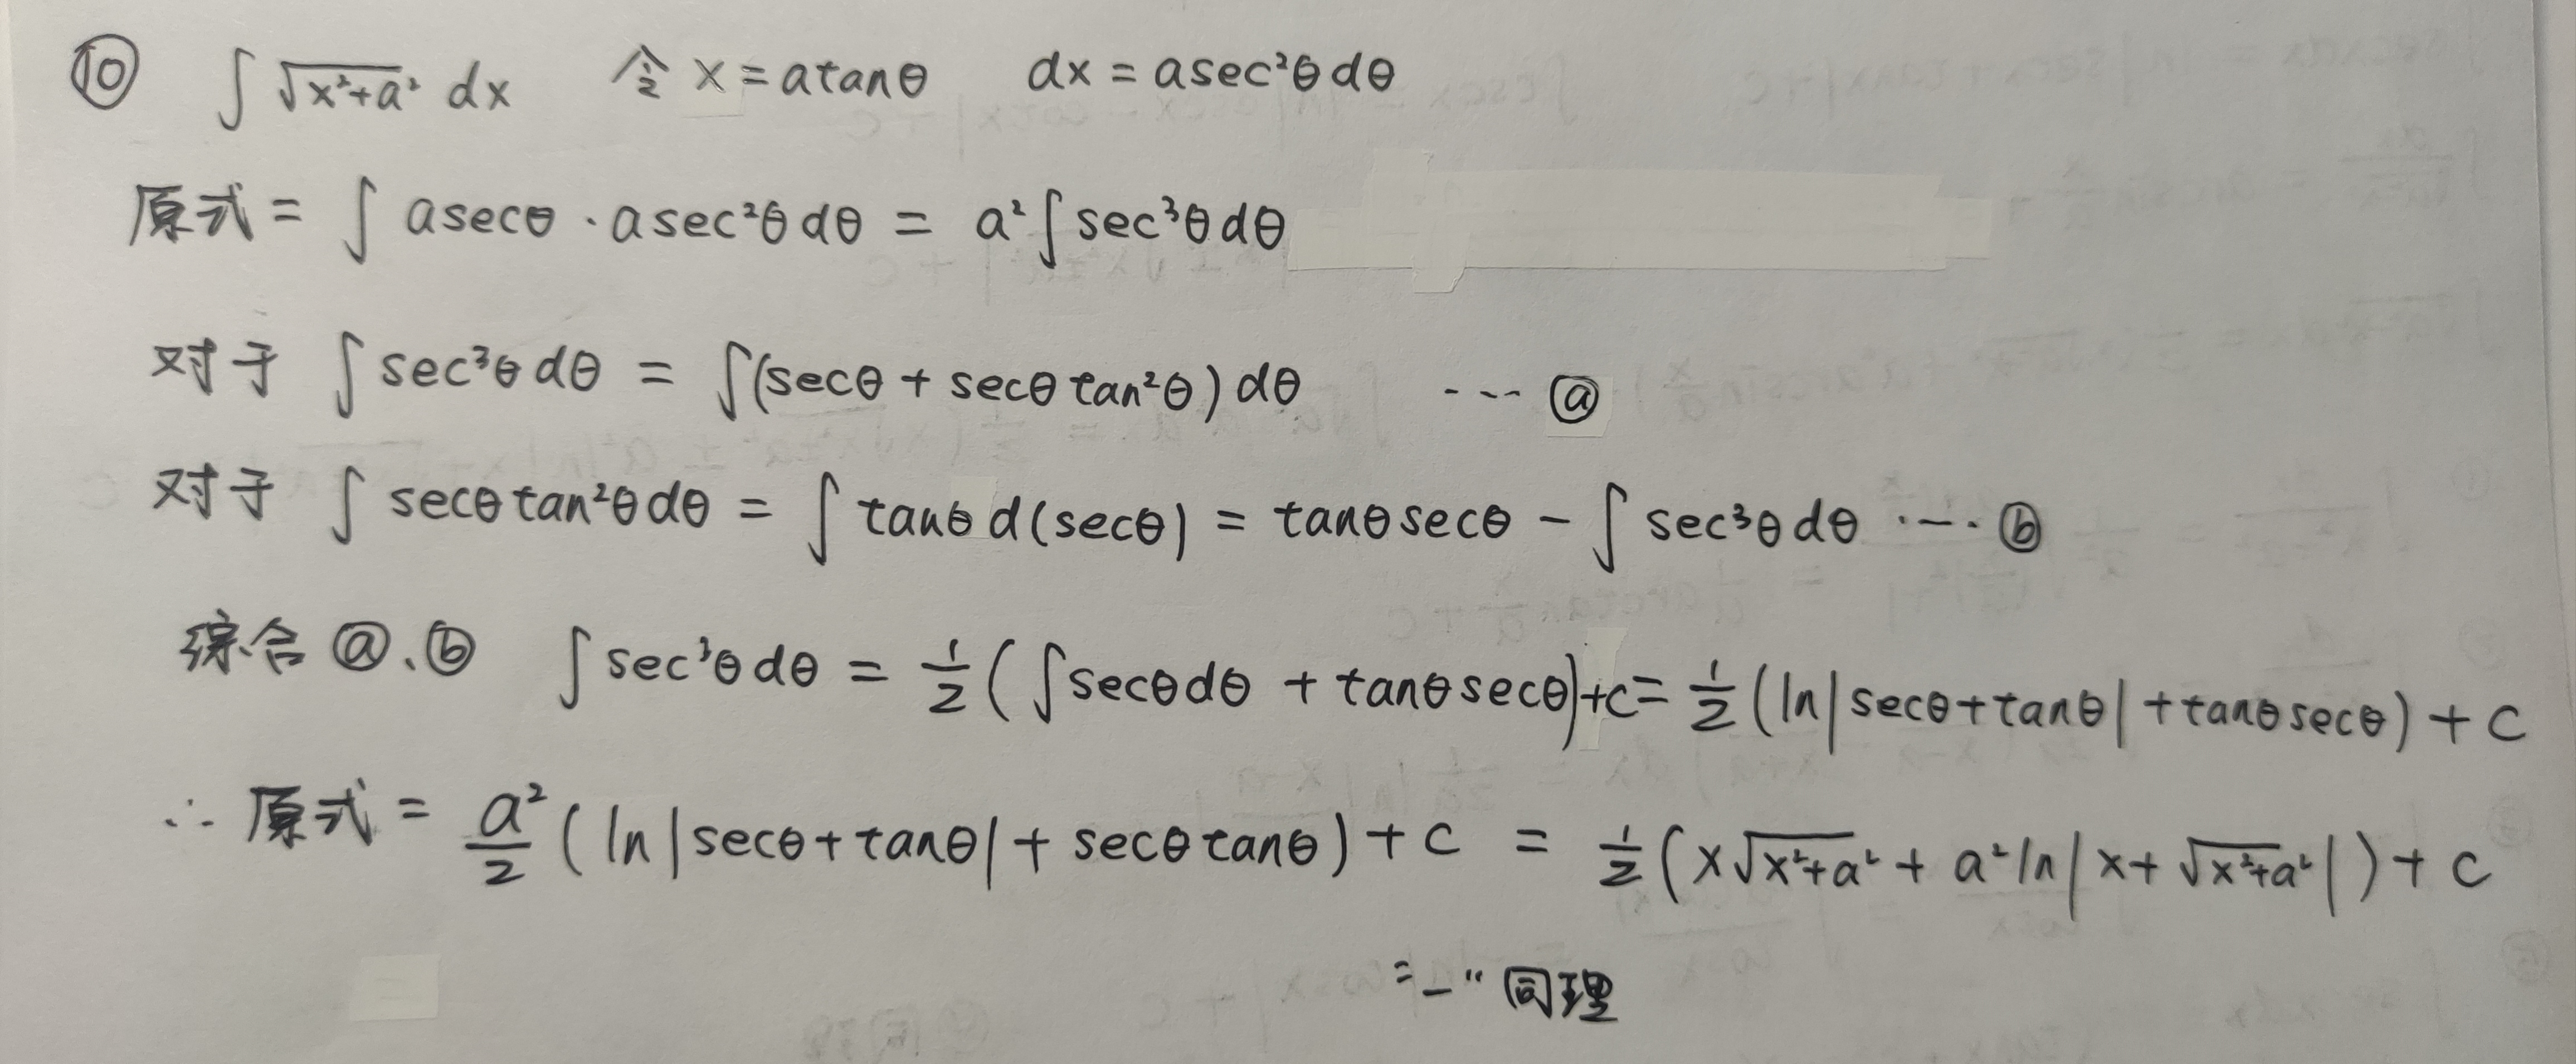 ⑩ ∫√x²+a² dx 令 x = atanθ dx = asec²θdθ
原式 = ∫ asecθ · asec²θdθ = a²∫sec³θdθ
对于 ∫sec³θdθ = ∫(secθ + secθtan²θ)dθ --- ⓐ
对于 ∫ secθtan²θdθ = ∫ tanθd(secθ) = tanθsecθ - ∫ sec³θdθ ... ⓑ
综合 ⓐ、ⓑ ∫sec³θdθ = 1/2(∫secθdθ + tanθsecθ)+c = 1/2(ln|secθ+tanθ|+tanθsecθ)+c
∴ 原式 = a²/2(ln|secθ+tanθ|+secθtanθ)+c = 1/2(x√x²+a² + a²ln|x+√x²+a²|)+c
"-" 同理